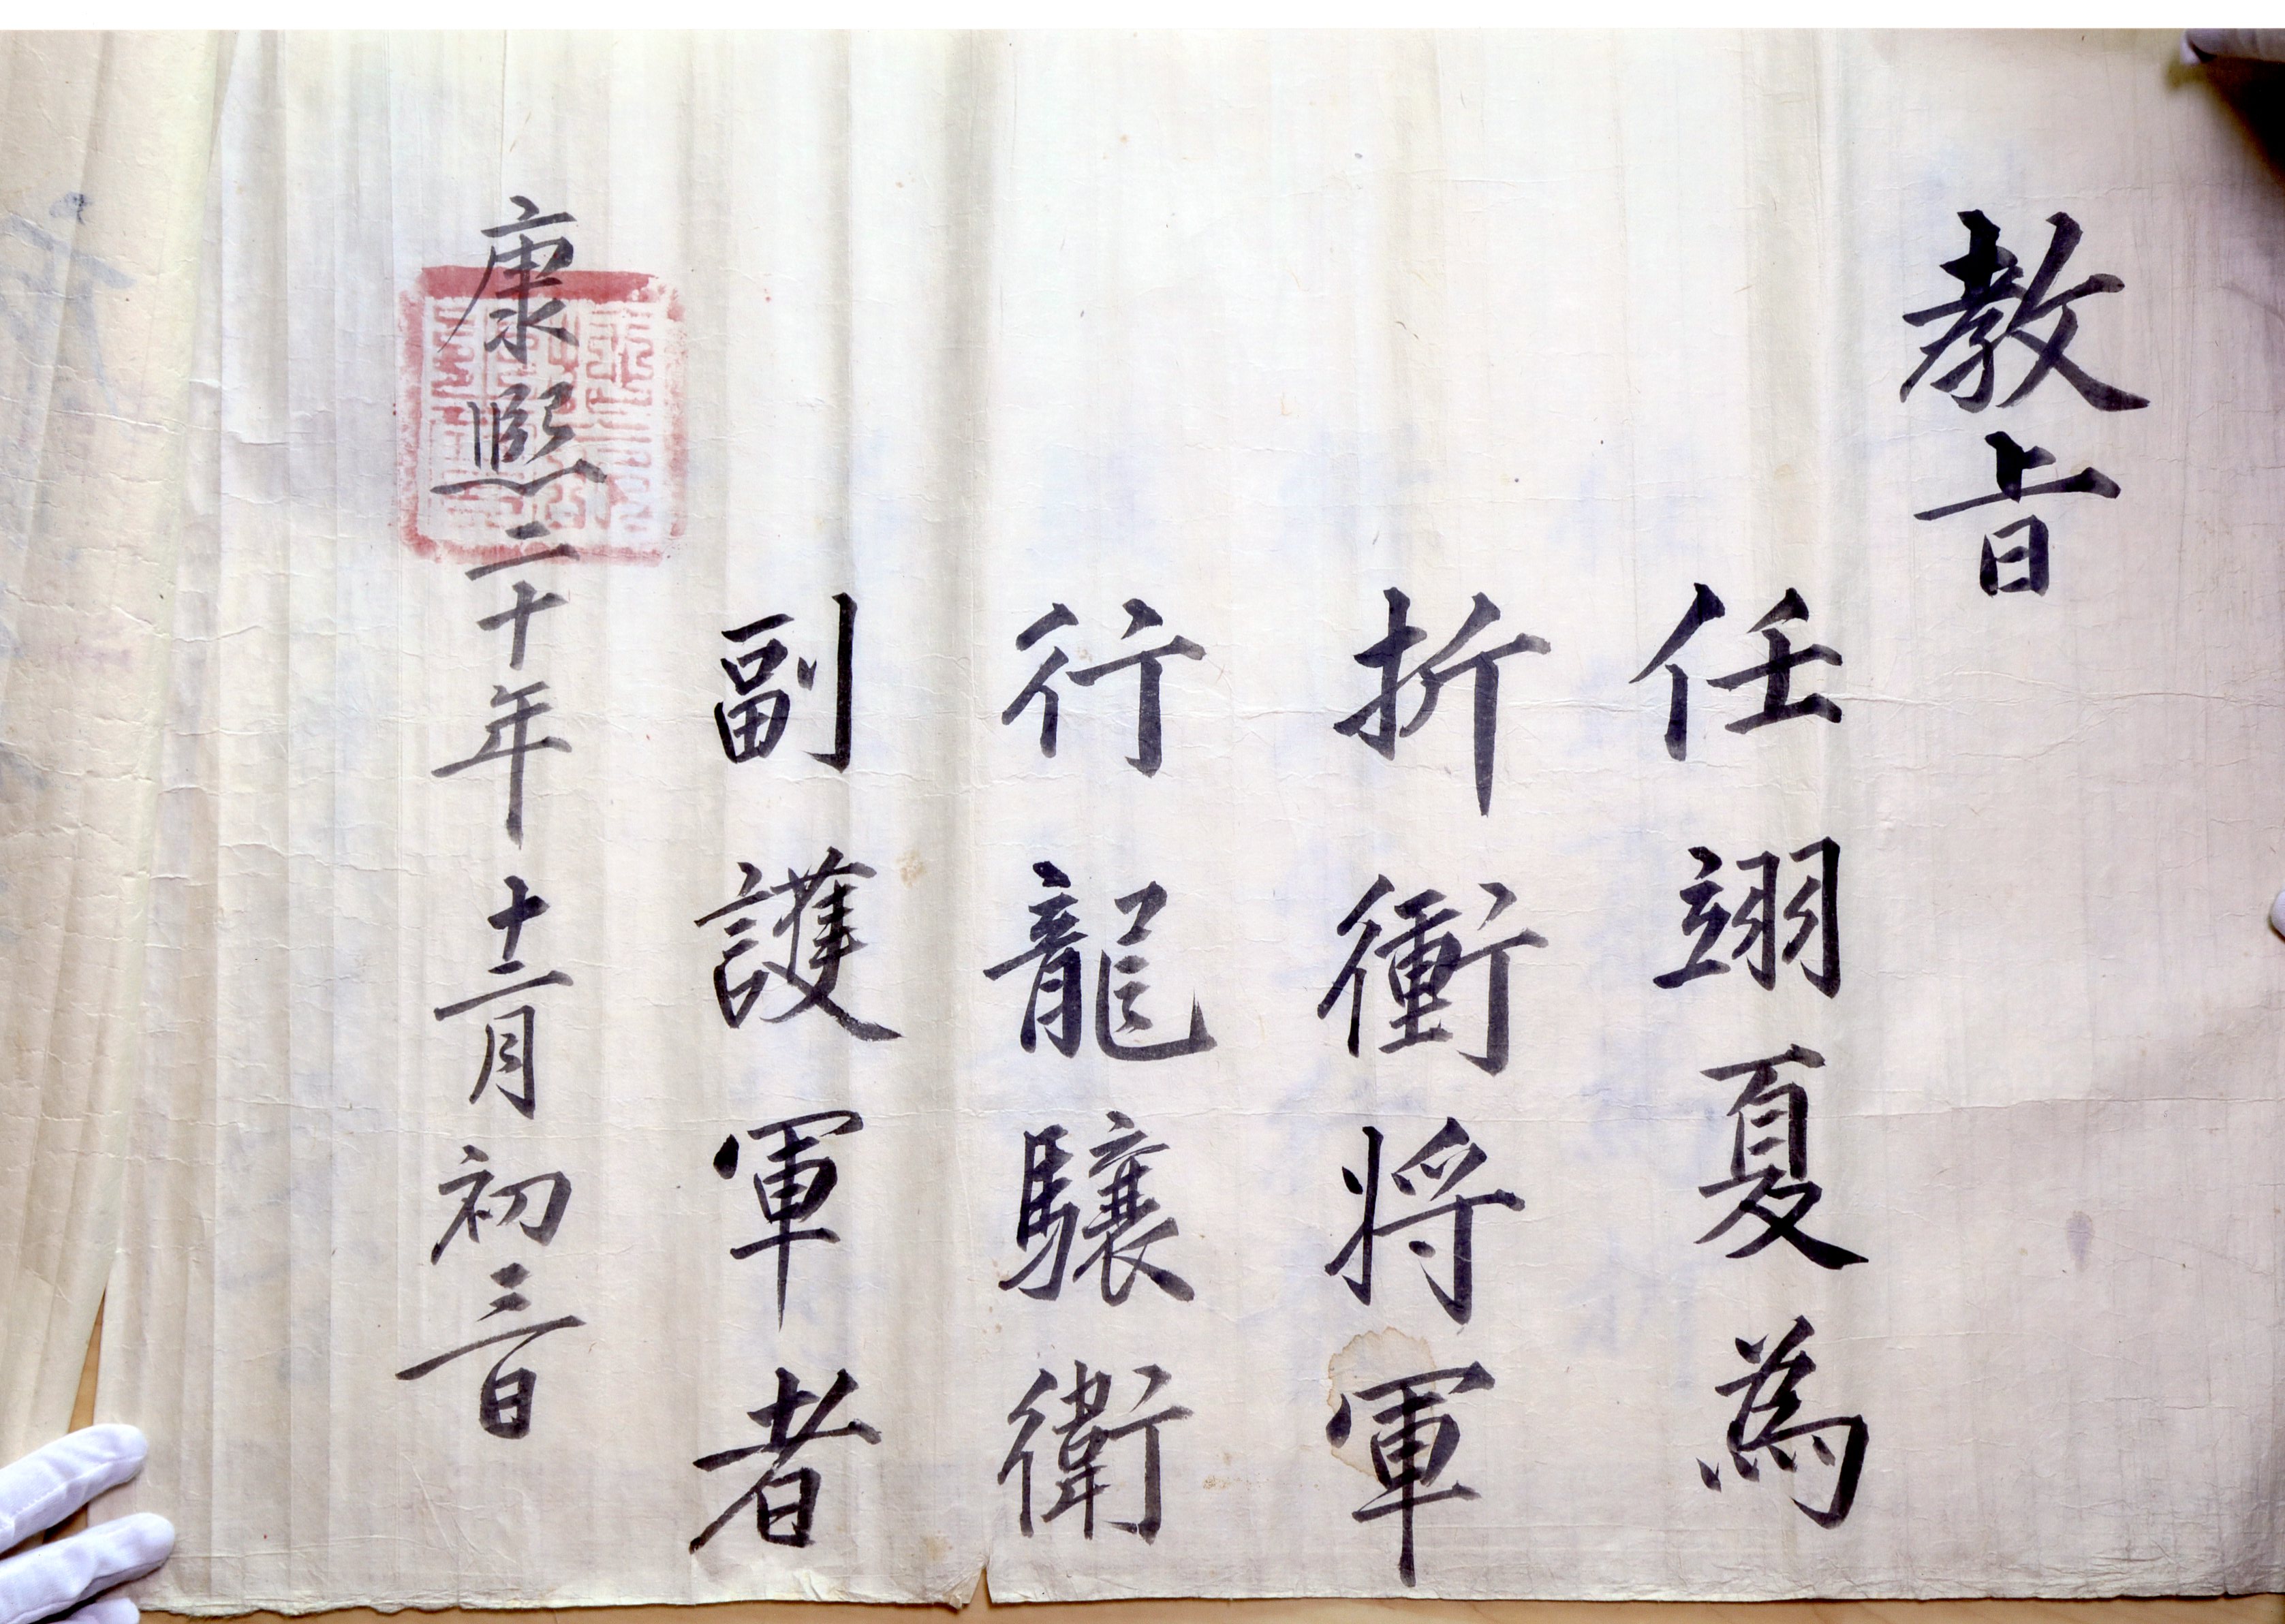 教旨
任翊夏為
折衝将軍
行龍驤衛
副護軍者
康熙二十年十二月初三日